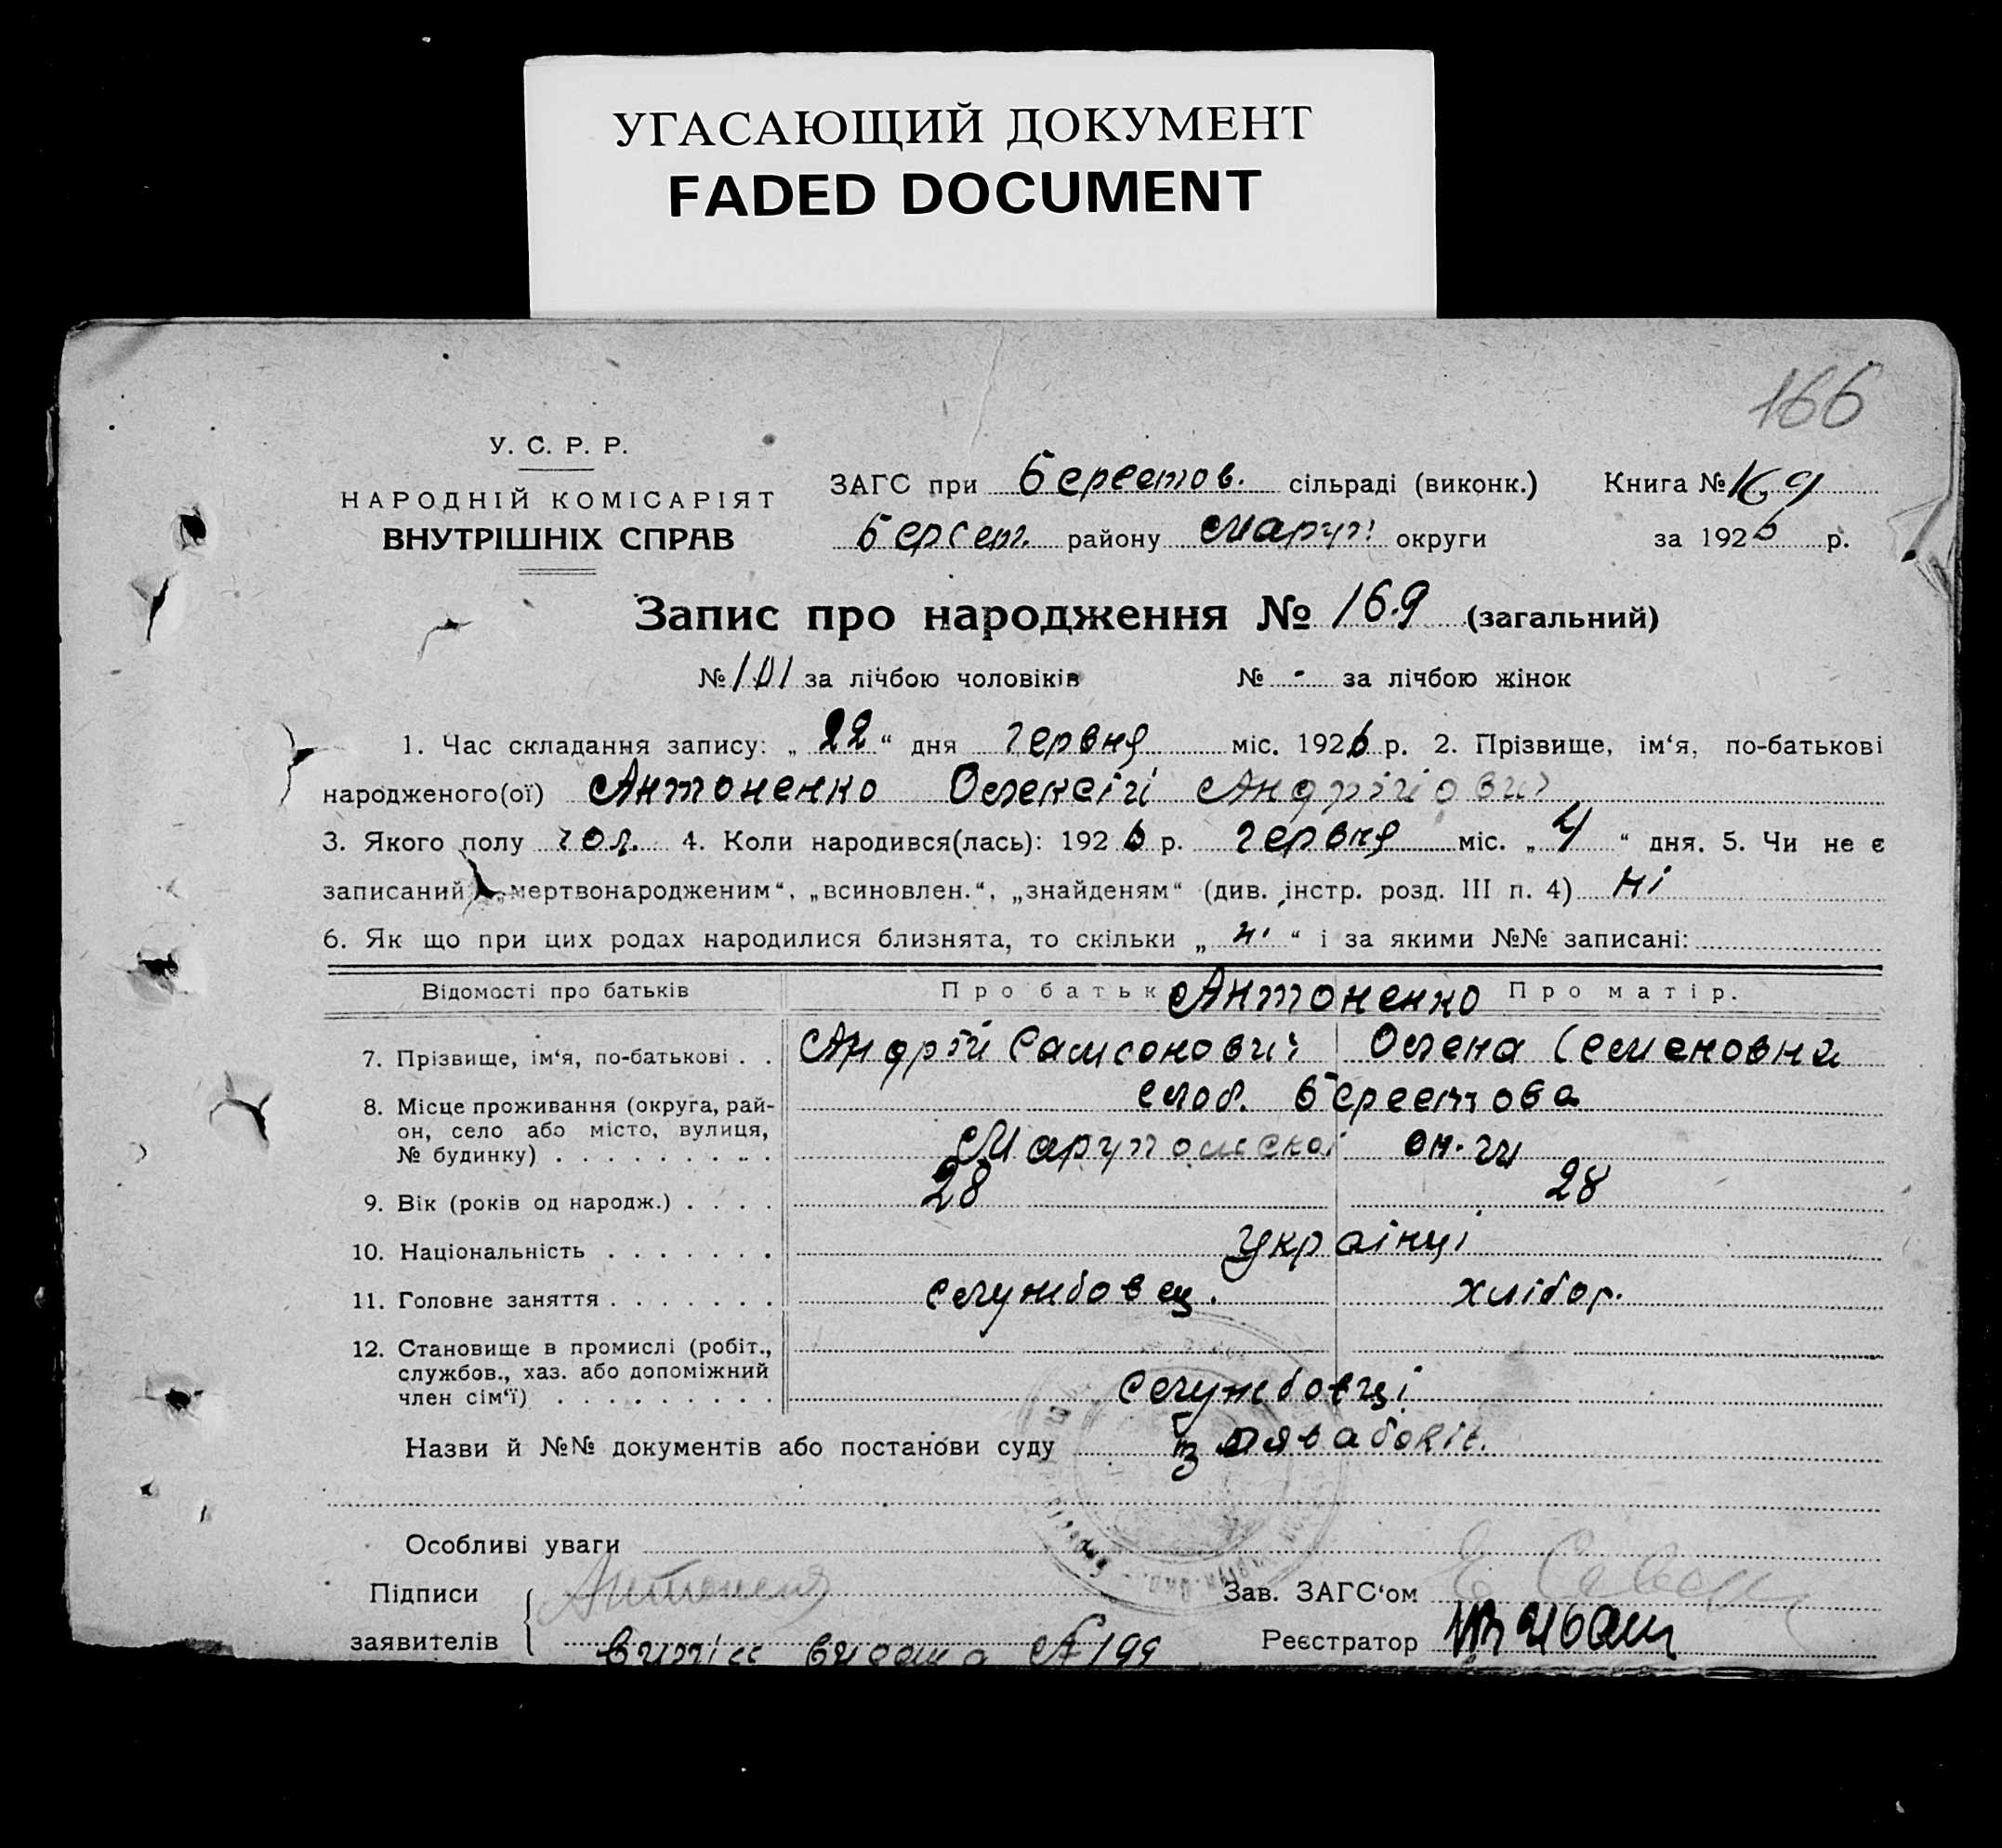 УГАСАЮЩИЙ ДОКУМЕНТ
FADED DOCUMENT
166
У. С. Р. Р.
НАРОДНІЙ КОМІСАРІЯТ
ВНУТРІШНІХ СПРАВ
ЗАГС при Берестов. сільраді (виконк.) Книга № 169
Берест. району Маруп. округи за 1926 р.
Запис про народження № 169 (загальний)
№ 101 за лічбою чоловіків № - за лічбою жінок
1. Час складання запису: „ 22 “ дня червня міс. 1926 р. 2. Прізвище, ім‘я, по-батькові
народженого(ої) Антоненко Олексій Андрійович
3. Якого полу чол. 4. Коли народився(лась): 1926 р. червня міс. „ 4 “ дня. 5. Чи не є
записаний „мертвонародженим“, „всиновлен.“, „знайденям“ (див. інстр. розд. III п. 4) ні
6. Як що при цих родах народилися близнята, то скільки „ ні “ і за якими №№ записані:
Відомості про батьків Про батьк Антоненко Про матір.
7. Прізвище, ім‘я, по-батькові . . Андрій Самсонович Олена Семеновна
8. Місце проживання (округа, рай-
он, село або місто, вулиця,
№ будинку) . . . . . . . . .
слоб. Берестова
Марупольскоі ок-ги
9. Вік (років од народж.) . . . . 28 28
10. Національність . . . . . . . Украінці
11. Головне заняття . . . . . . . службовец. хлібор.
12. Становище в промислі (робіт.,
службов., хаз. або допоміжний
член сім‘ї) . . . . . . . . .
службовці
Назви й №№ документів або постанови суду
Особливі уваги
Підписи
заявителів
Антоненко
Випісь видана № 199
Зав. ЗАГС‘ом
Реєстратор